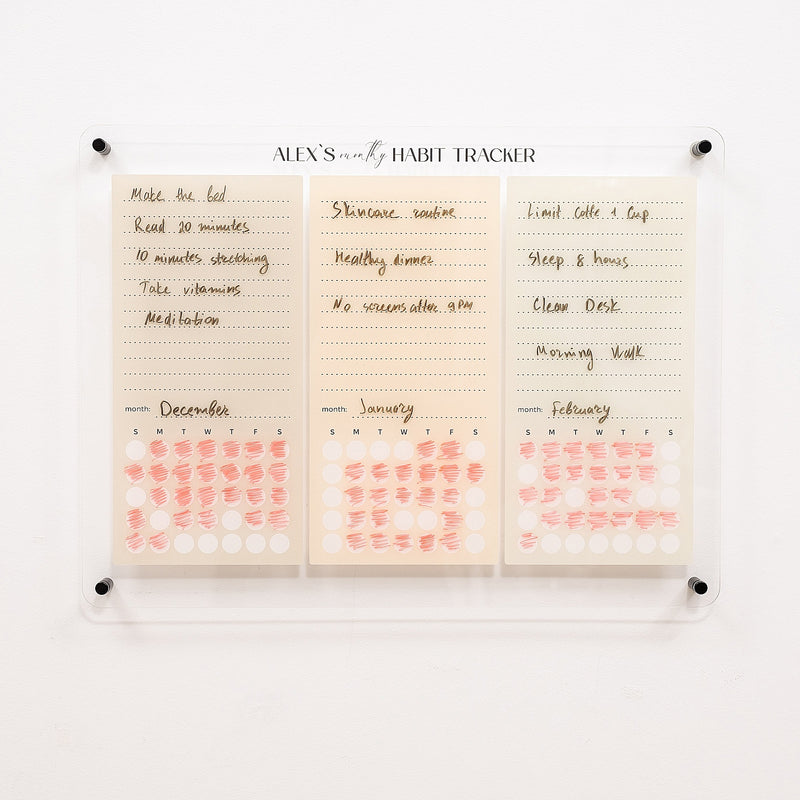 ALEX`S monthly HABIT TRACKER
Make the bed
Read 20 minutes
10 minutes stretching
Take vitamins
Meditation
month: December
S M T W T F S
Skincare routine
Healthy dinner
No screens after 9 PM
month: January
S M T W T F S
Limit coffe 1 Cup
Sleep 8 hours
Clean Desk
Morning Walk
month: February
S M T W T F S